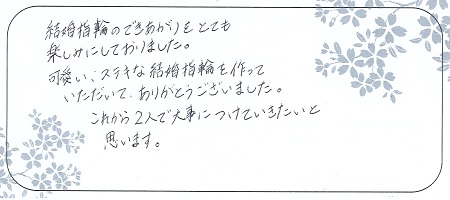 結婚指輪のできあがりをとても
楽しみにしておりました。
可愛い、ステキな結婚指輪を作って
いただいて、ありがとうございました。
これから2人で大事につけていきたいと
思います。